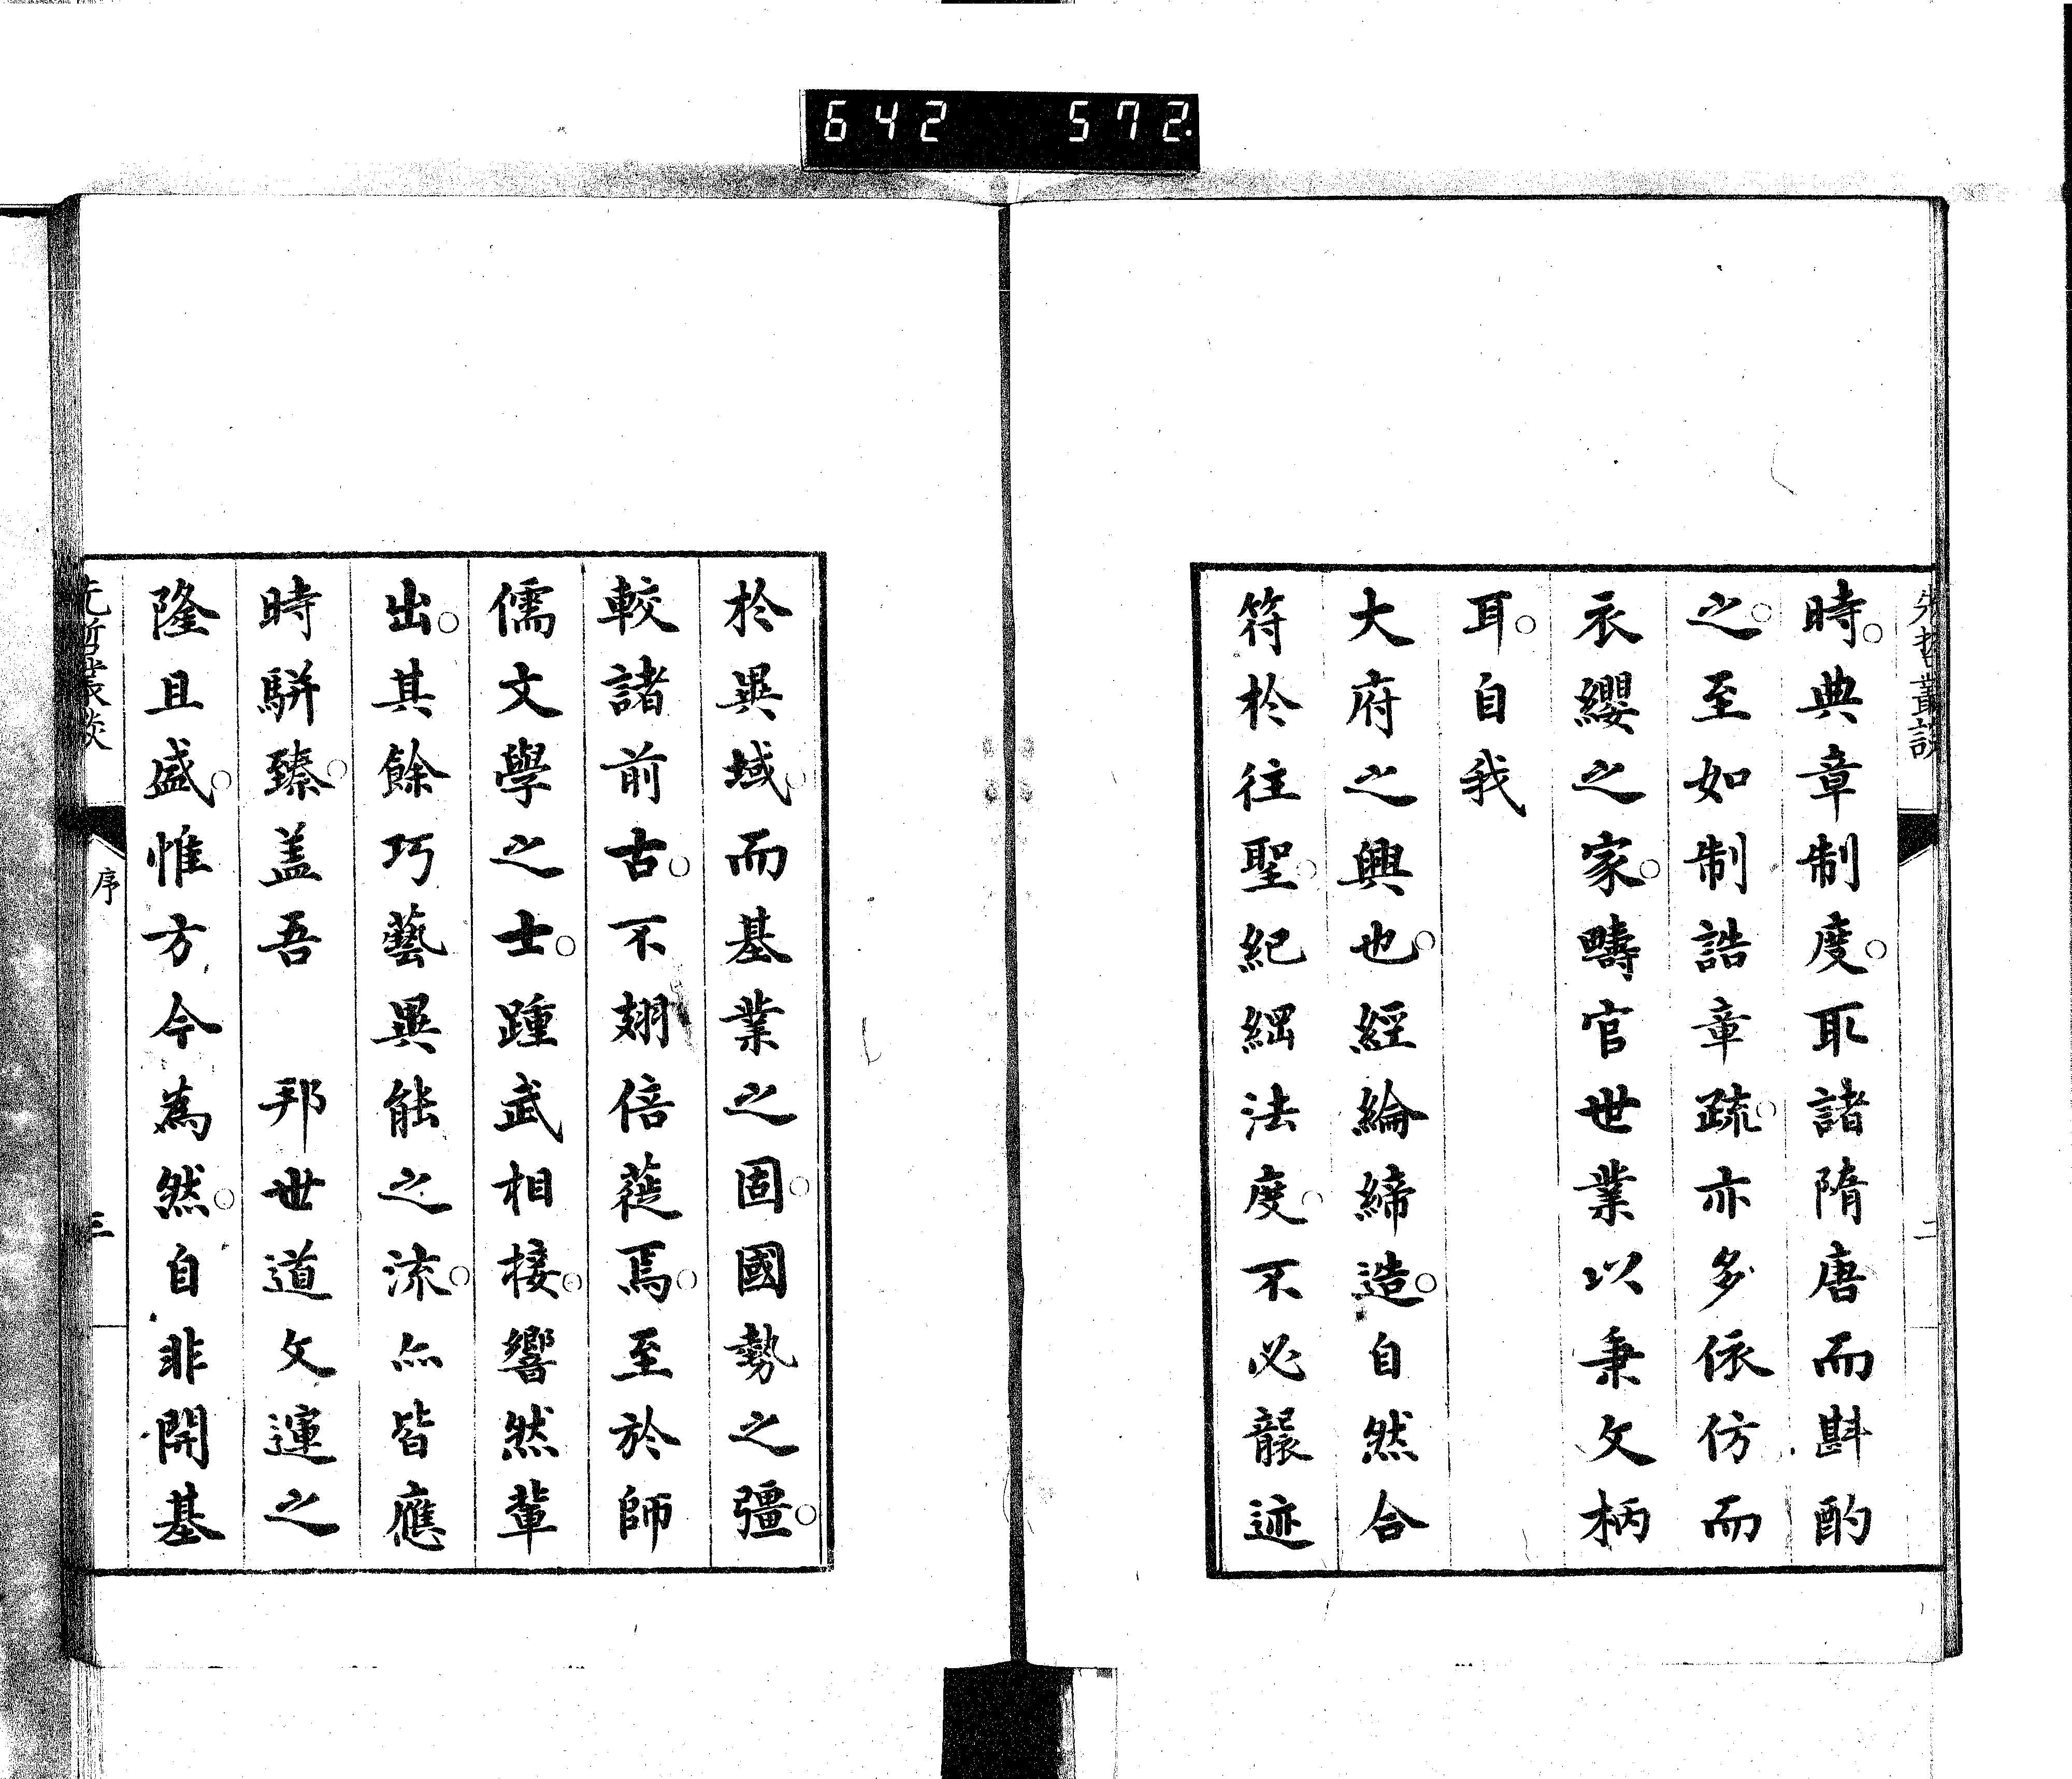 642 572
先哲叢談
二
時。典章制度。取諸隋唐而斟酌
之。至如制誥章疏。亦多依仿而
衣纓之家。疇官世業以秉文柄
耳。自我
大府之興也。經綸締造。自然合
符於往聖。紀綱法度。不必襲迹
於異域。而基業之固。國勢之彊。
較諸前古。不翅倍蓰焉。至於師
儒文學之士。踵武相接。響然輩
出。其餘巧藝異能之流。亦皆應
時駢臻。盖吾　邦世道文運之
隆且盛。惟方今為然。自非開基
先哲叢談
序
三